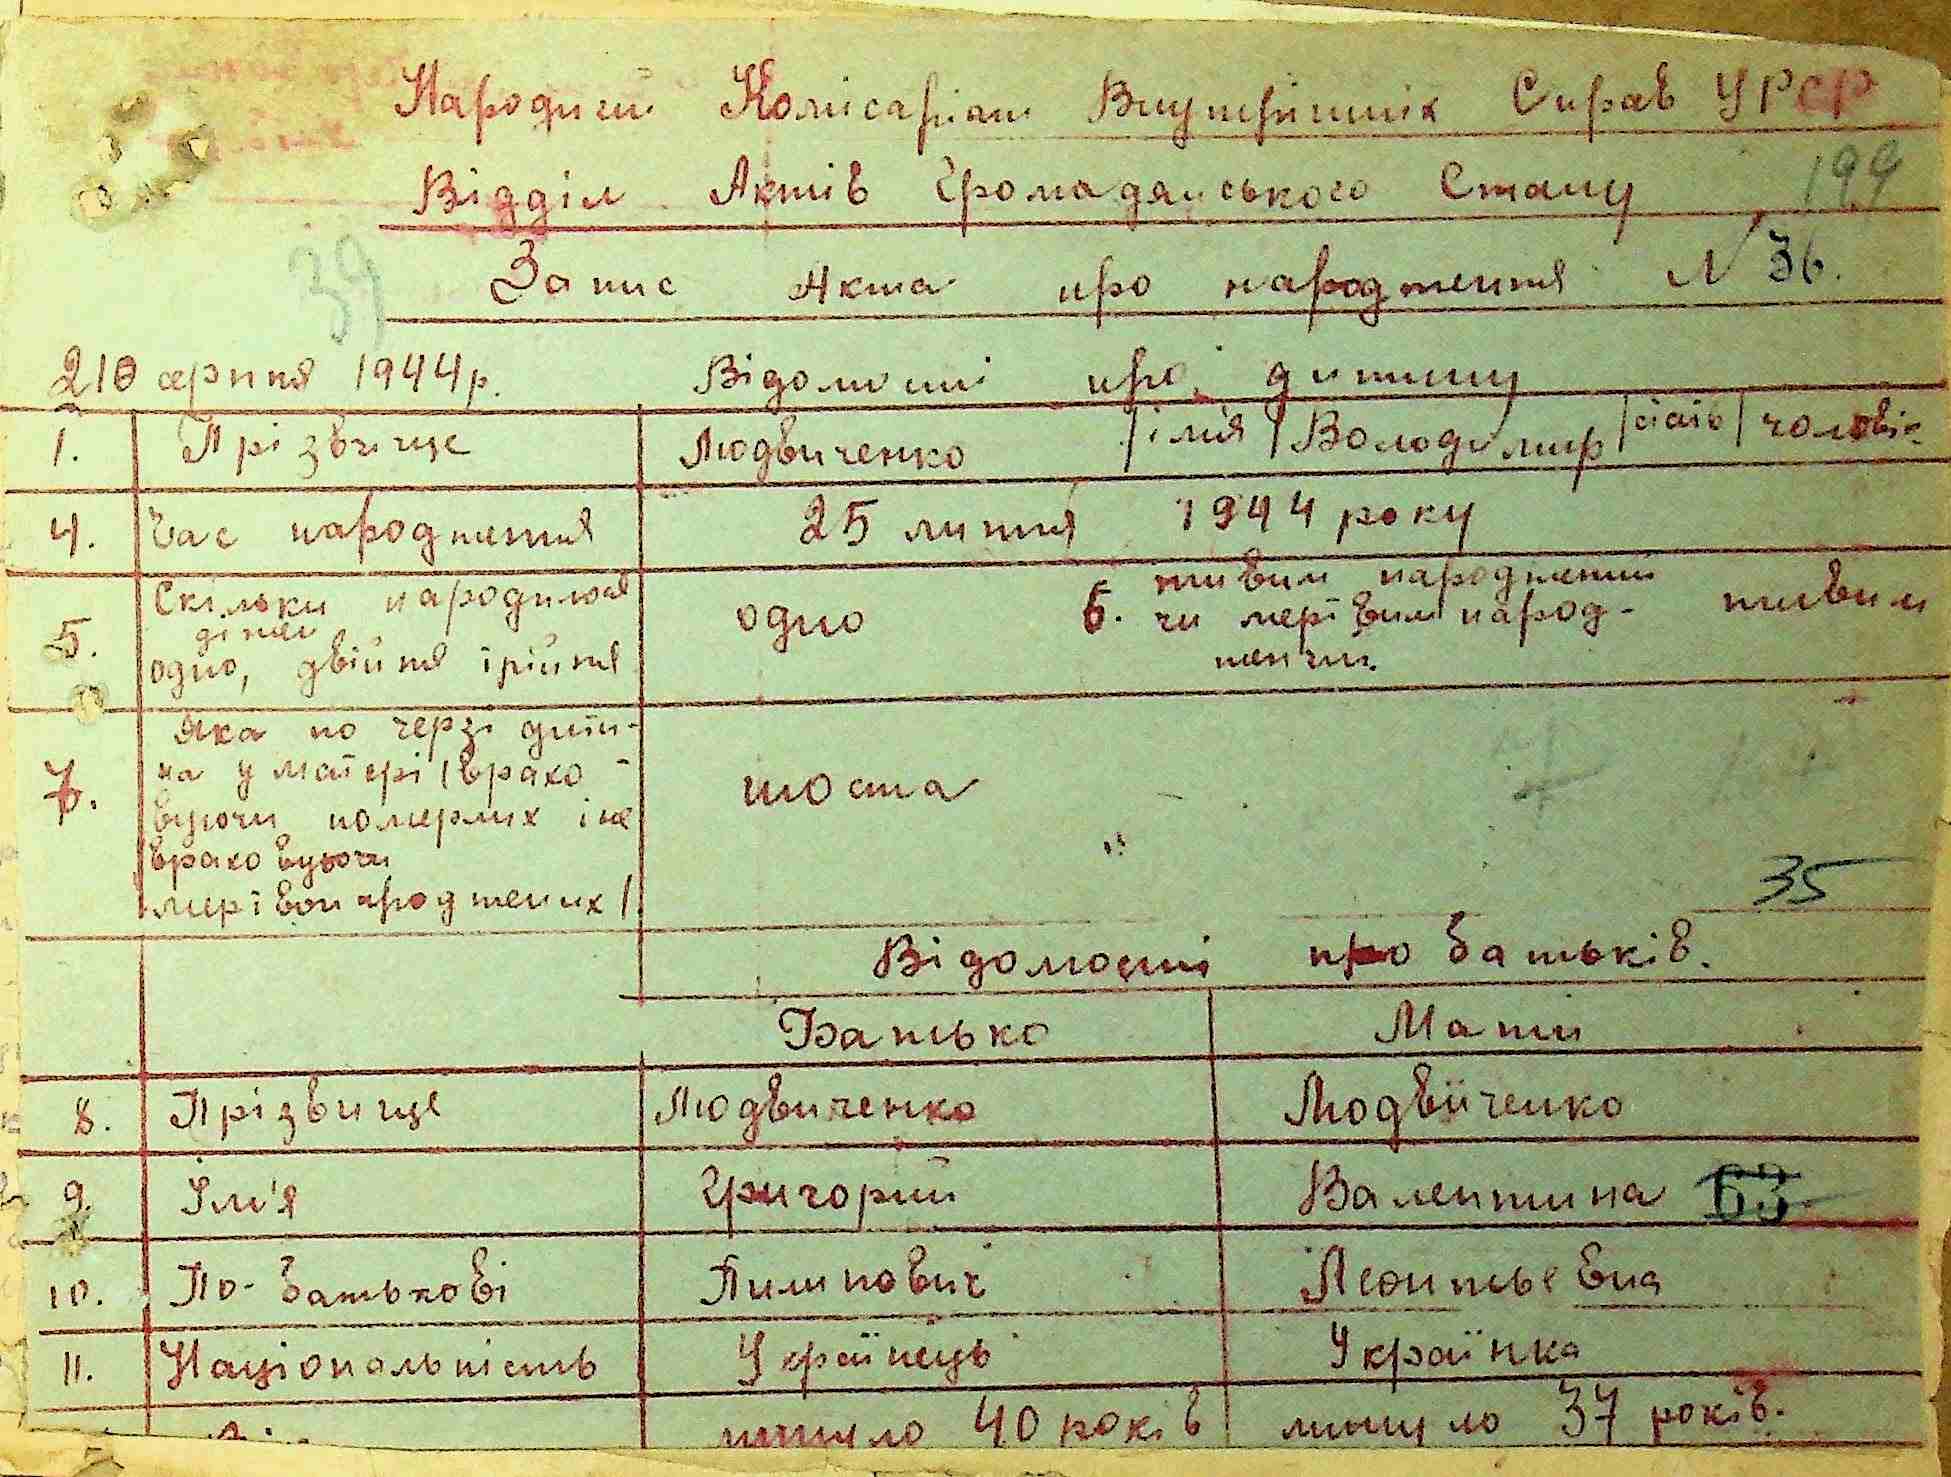 Народний Комісаріат Внутрішніх Справ УРСР
Відділ Актів Громадянського Стану
199
Запис Акта про народження N 36.
39
210 серпня 1944 р. Відомості про дитину
1. Прізвище Людвиченко / ім'я / Володимир / стать / чоловіч
4. Час народження 25 липня 1944 року
5. Скільки народилося дітей одно, двійня трійня
одно
6. живим народжений чи мертвим народженим. живим
7. Яка по черзі дити-
на у матері (врахо-
вуючи померлих і не
враховуючи
мертвонароджених)
шоста
35
Відомості про батьків.
Батько Мати
8. Прізвище Людвиченко Людвіченко
9. Ім'я Григорий Валентина 63
10. По-батькові Пилипович Леонтьевна
11. Національність Українець Українка
минуло 40 років минуло 37 років.